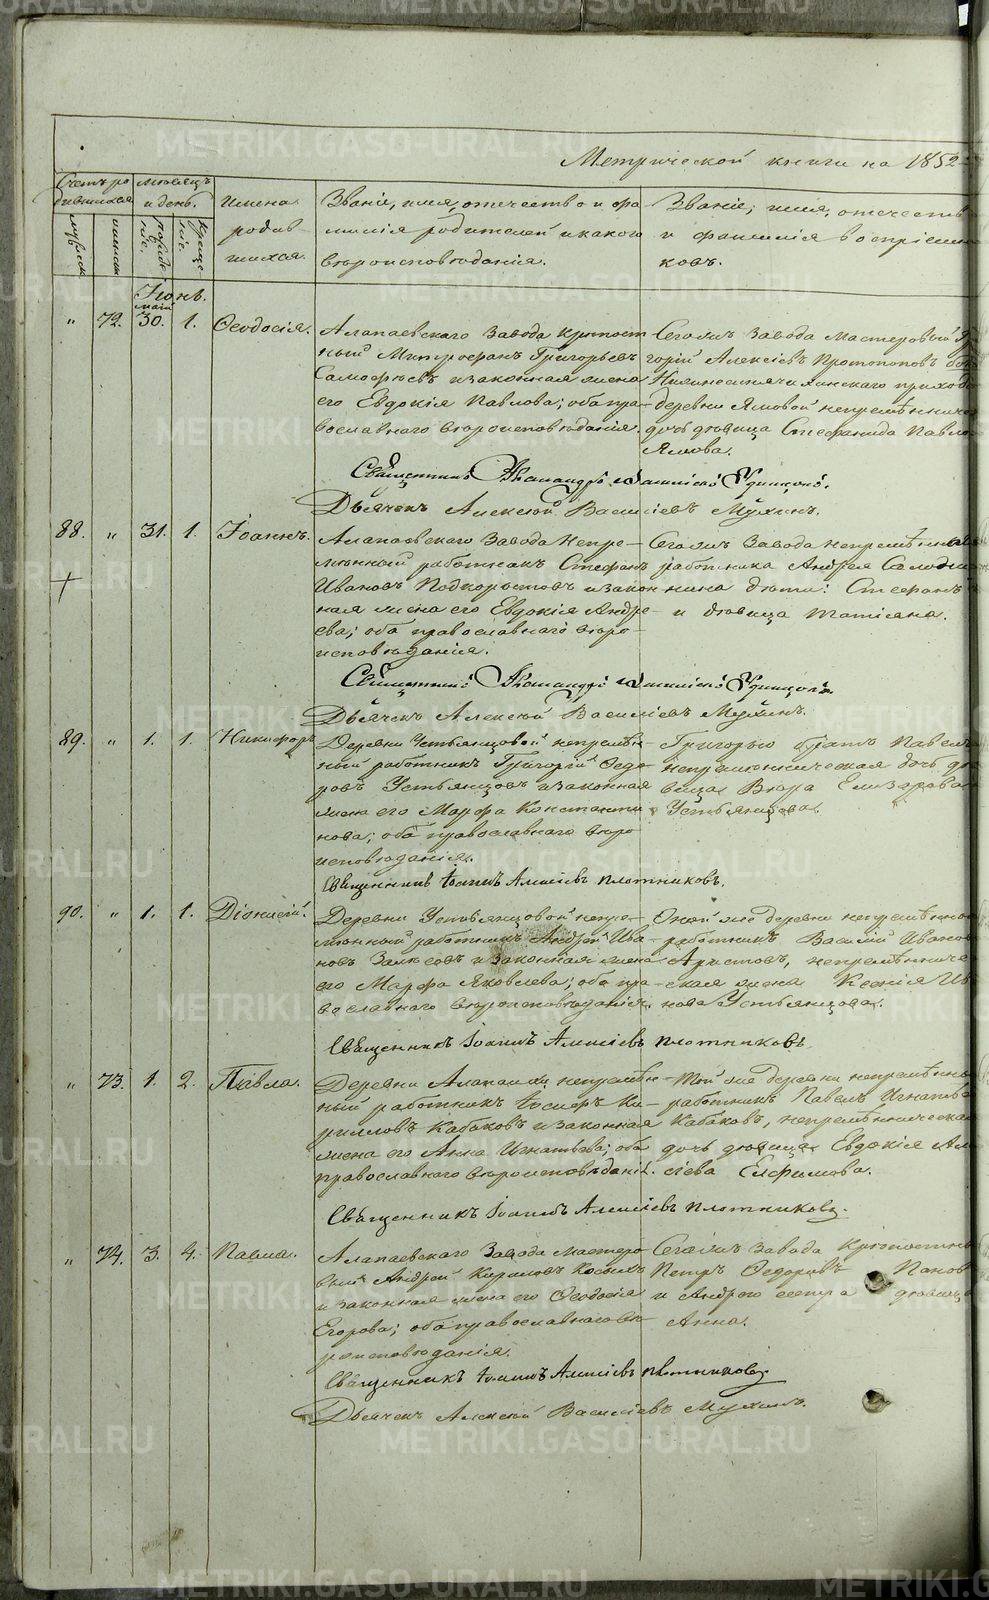 METRIKI.GASO-URAL.RU
Метрической книги на 1852
Счетъ ро
дившихся
Мѣсяцъ
и день.
Имена
родив
шихся.
Званіе, имя, отечество и фа
милія родителей и какого
вѣроисповѣданія.
Званіе, имя, отечеств
и фамилія воспріемн
ковъ.
мужеска
женска
рожде
нія.
креще
нія.
Іюнь.
" 72. май 30. 1. Ѳеодосія.
Алапаевскаго завода крѣпост
ный Митрофанъ Григорьевъ
и законная жена
его Евдокія Павлова; оба пра
вославнаго вѣроисповѣданія.
Сегожъ завода мастеровый Гри
горій Алексіевъ Протопоповъ
прихода
деревни Ямовой непремѣннича
дочь дѣвица Стефанида Павло
Ямова.
Священникъ Александръ
Дьячекъ Алексѣй Васильевъ Мухинъ.
88. " 31. 1. Іоаннъ.
Алапаевскаго завода Непре-
мѣнный работникъ Стефанъ
Ивановъ Подкорытовъ и закон
ная жена его Евдокія Андре
ева; оба православнаго вѣро
исповѣданія.
Сегожъ завода непремѣннаго
работника Андрея
дѣти: Стефанъ
и дѣвица Татіана.
Священникъ Александръ
Дьячекъ Алексѣй Васильевъ Мухинъ.
89. " 1. 1. Никифоръ
Деревни Устьянцовой непремѣн
ный работникъ Григорій Ѳедо
ровъ Устьянцовъ и законная
жена его Марфа Константи
нова; оба православнаго вѣро
исповѣданія.
Григорью братъ Павелъ
непремѣнническая дочь дѣ
вица Вѣра Елизарова
Устьянцова.
Священникъ Іоаннъ Алексіевъ Плотниковъ.
90. " 1. 1. Діонисій.
Деревни Устьянцовой непре-
мѣнный работникъ Андрей Ива
новъ и законная жена
его Марфа Яковлева; оба пра
вославнаго вѣроисповѣданія.
Оной же деревни непремѣнной
работникъ Василій Иванов
Аристовъ, непремѣнниче
ская жена Ксенія Ив
нова Устьянцова.
Священникъ Іоаннъ Алексіевъ Плотниковъ.
" 73. 1. 2. Павла.
Деревни Алапаихи непремѣн
ный работникъ Іосифъ Ки
рилловъ Кабаковъ и законная
жена его Анна Игнатьева; оба
православнаго вѣроисповѣданія.
Той же деревни непремѣнны
работникъ Павелъ Игнатьев
Кабаковъ, непремѣнническая
дочь дѣвица Евдокія Ал
сіева Елфимова.
Священникъ Іоаннъ Алексіевъ Плотниковъ.
" 74. 3. 4. Павла.
Алапаевскаго завода мастеро
вый Андрей Кириловъ Косыхъ
и законная жена его Ѳеодосія
Егорова; оба православнаго вѣ
роисповѣданія.
Сегожъ завода крѣпостны
Петръ Ѳедоровъ Панов
и Андрею сестра дѣвица
Анна.
Священникъ Іоаннъ Алексіевъ Плотниковъ
Дьячекъ Алексѣй Васильевъ Мухинъ.